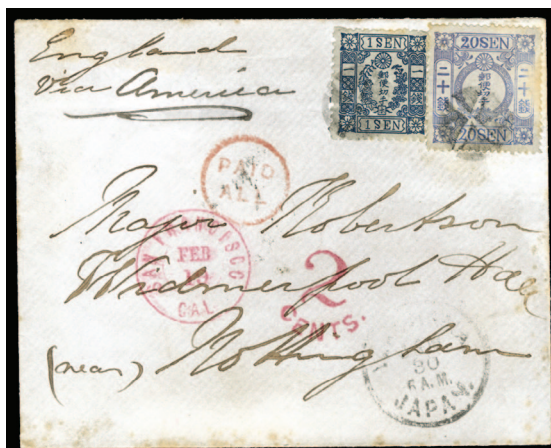 England
via America
1 SEN
郵便切手
1 SEN
20 SEN
二十銭
郵便切手
二十銭
20 SEN
PAID
ALL
SAN FRANCISCO
FEB
CAL
2
CENTS.
Major Robertson
Widmerpool Hall
(near) Nottingham
20
6 A.M.
JAPAN.